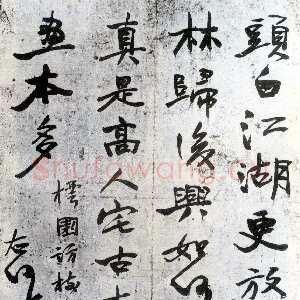 頭白江湖更放
林歸後興如何
真是高人宅古
畫本多
樗園訪
右